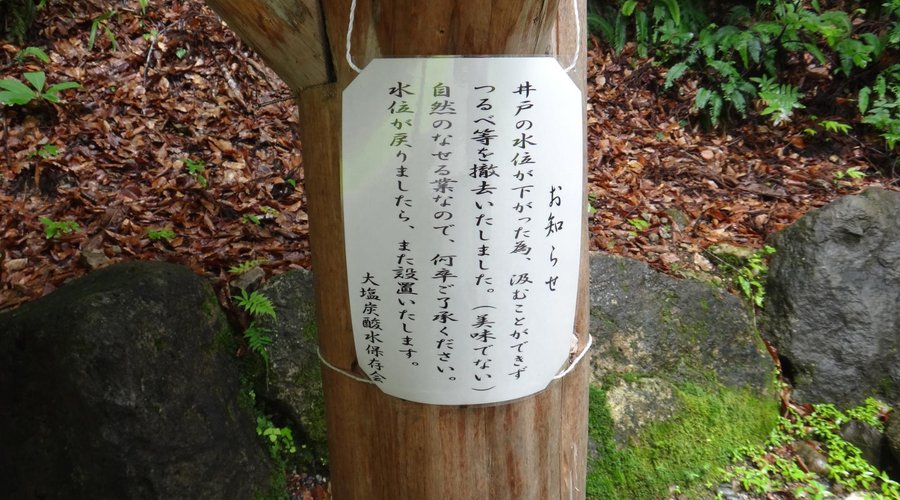 お知らせ
井戸の水位が下がった為、汲むことができず
つるべ等を撤去いたしました。（美味でない）
自然のなせる業なので、何卒ご了承ください。
水位が戻りましたら、また設置いたします。
大塩炭酸水保存会